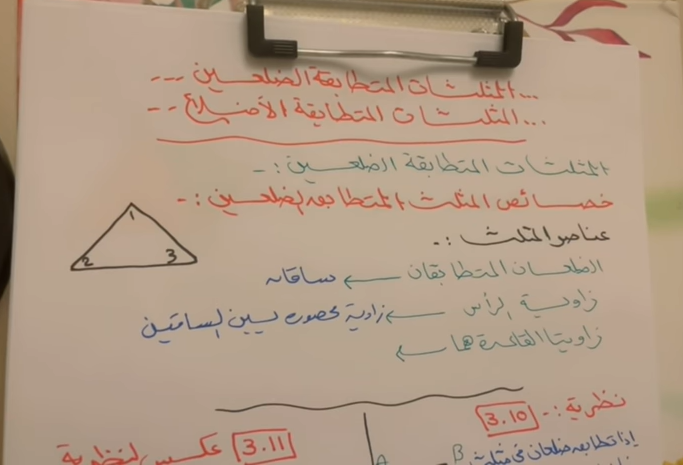 ... المثلثات المتطابقة الضلعين ---
... المثلثات المتطابقة الأضلاع --
المثلثات المتطابقة الضلعين :-
خصائص المثلث المتطابق الضلعين :-
عناصر المثلث :-
1
2 3
الضلعان المتطابقان ← ساقان
زاوية الرأس ← زاوية محصورة بين الساقين
زاويتا القاعدة هما ←
نظرية :- 3.10
إذا تطابق ضلعان في مثلث
B
A
3.11 عكس نظرية